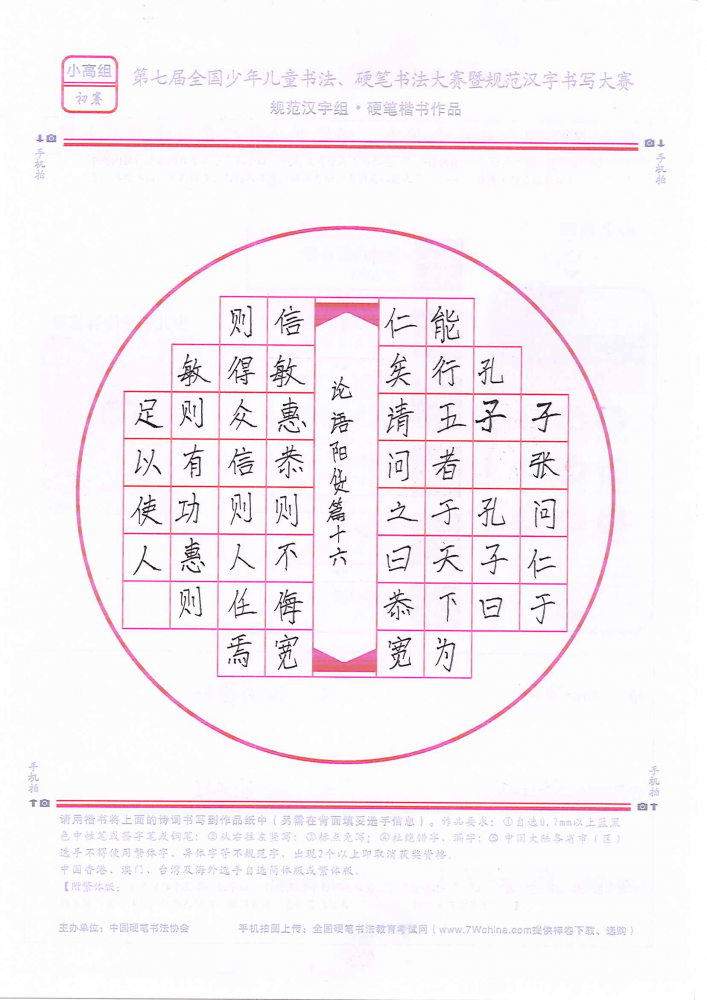 小高组
初赛
第七届全国少年儿童书法、硬笔书法大赛暨规范汉字书写大赛
规范汉字组·硬笔楷书作品
手机拍
手机拍
子张问仁于
孔子 孔子曰
能行五者于天下为
仁矣请问之曰恭宽
论语阳货篇十六
信敏惠恭则不侮宽
则得众信则人任焉
敏则有功惠则
足以使人
手机拍
手机拍
请用楷书将上面的诗词书写到作品纸中(另需在背面填妥选手信息)。作品要求:①自选0.7mm以上蓝黑
色中性笔或签字笔或钢笔;②从右往左竖写;③标点免写;④杜绝错字、漏字;⑤中国大陆各省市(区)
选手不得使用繁体字、异体字等不规范字,出现2个以上即取消获奖资格。
中国香港、澳门、台湾及海外选手自选简体版或繁体版。
【附繁体版:
主办单位:中国硬笔书法协会 手机拍图上传:全国硬笔书法教育考试网(www.7Wchina.com提供样卷下载、选购)